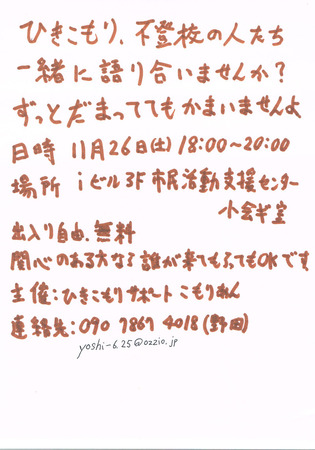 ひきこもり、不登校の人たち
一緒に語り合いませんか?
ずっとだまっててもかまいませんよ
日時 11月26日(土) 18:00～20:00
場所 iビル3F 市民活動支援センター
小会議室
出入り自由、無料
関心のある方なら誰が来てもとてもOKです
主催:ひきこもりサポート こもりれん
連絡先:090 7867 4018(野田)
yoshi-6.25@ozzio.jp